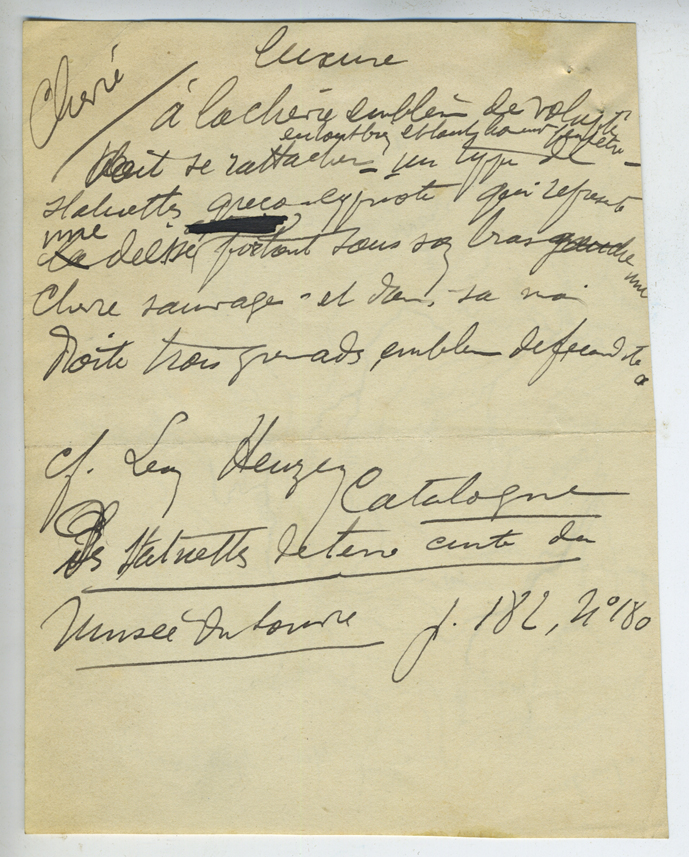 Luxure
Chèvre
à la chèvre emblème de volupté
peut être
doit se rattacher un type de
statuettes greco-cypriote qui représente
une
La déesse portant sous son bras gauche une
chèvre sauvage et dans sa main
droite trois grenades, emblème de fécondité
cf. Léon Heuzey Catalogue
Des statuettes de terre cuite du
Musée du Louvre p. 182, N° 180